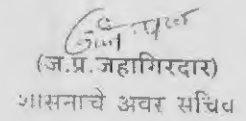 (ज.प्र.जहागिरदार)
शासनाचे अवर सचिव